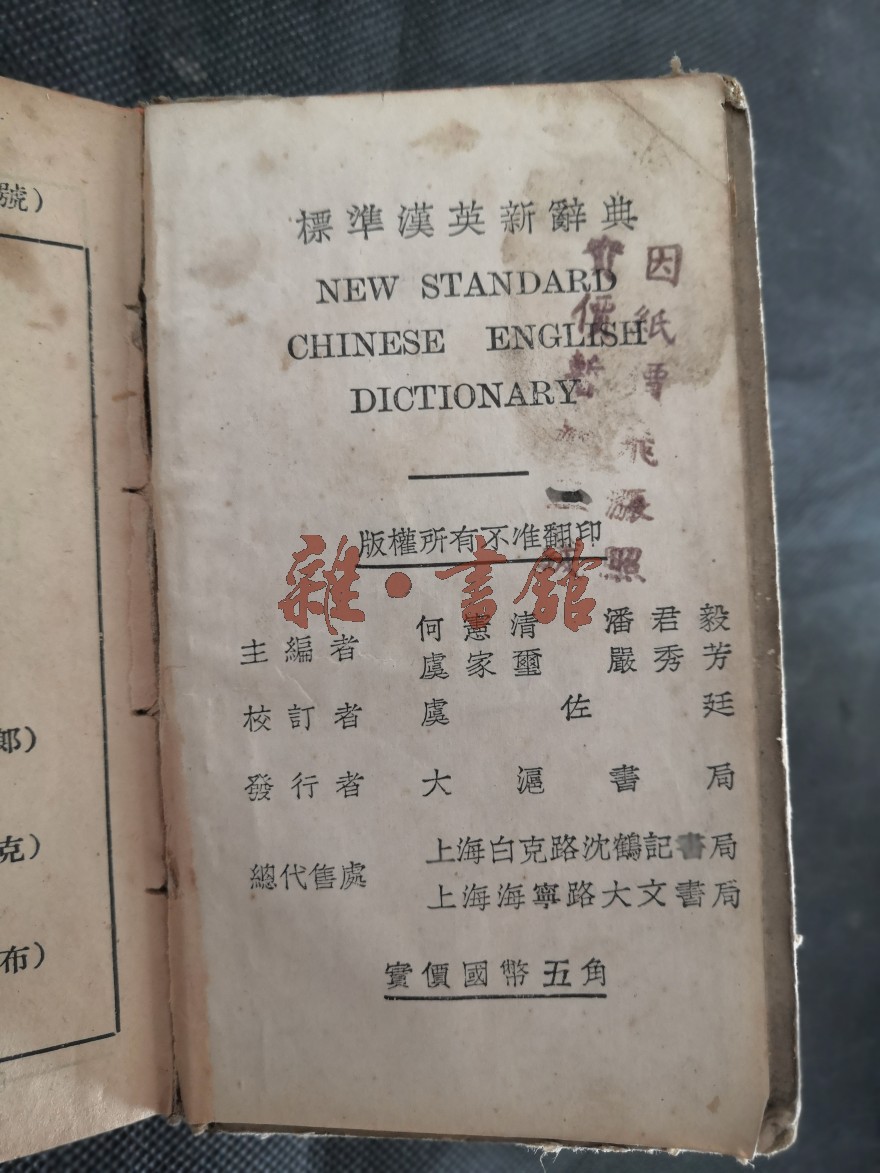 號)
郎)
克)
布)
標準漢英新辭典
NEW STANDARD
CHINESE ENGLISH
DICTIONARY
因紙價飛漲照
實價暫加二成
版權所有不准翻印
雜·書館
主編者 何憲清 潘君毅
虞家璽 嚴秀芳
校訂者 虞佐廷
發行者 大滬書局
總代售處 上海白克路沈鶴記書局
上海海寧路大文書局
實價國幣五角